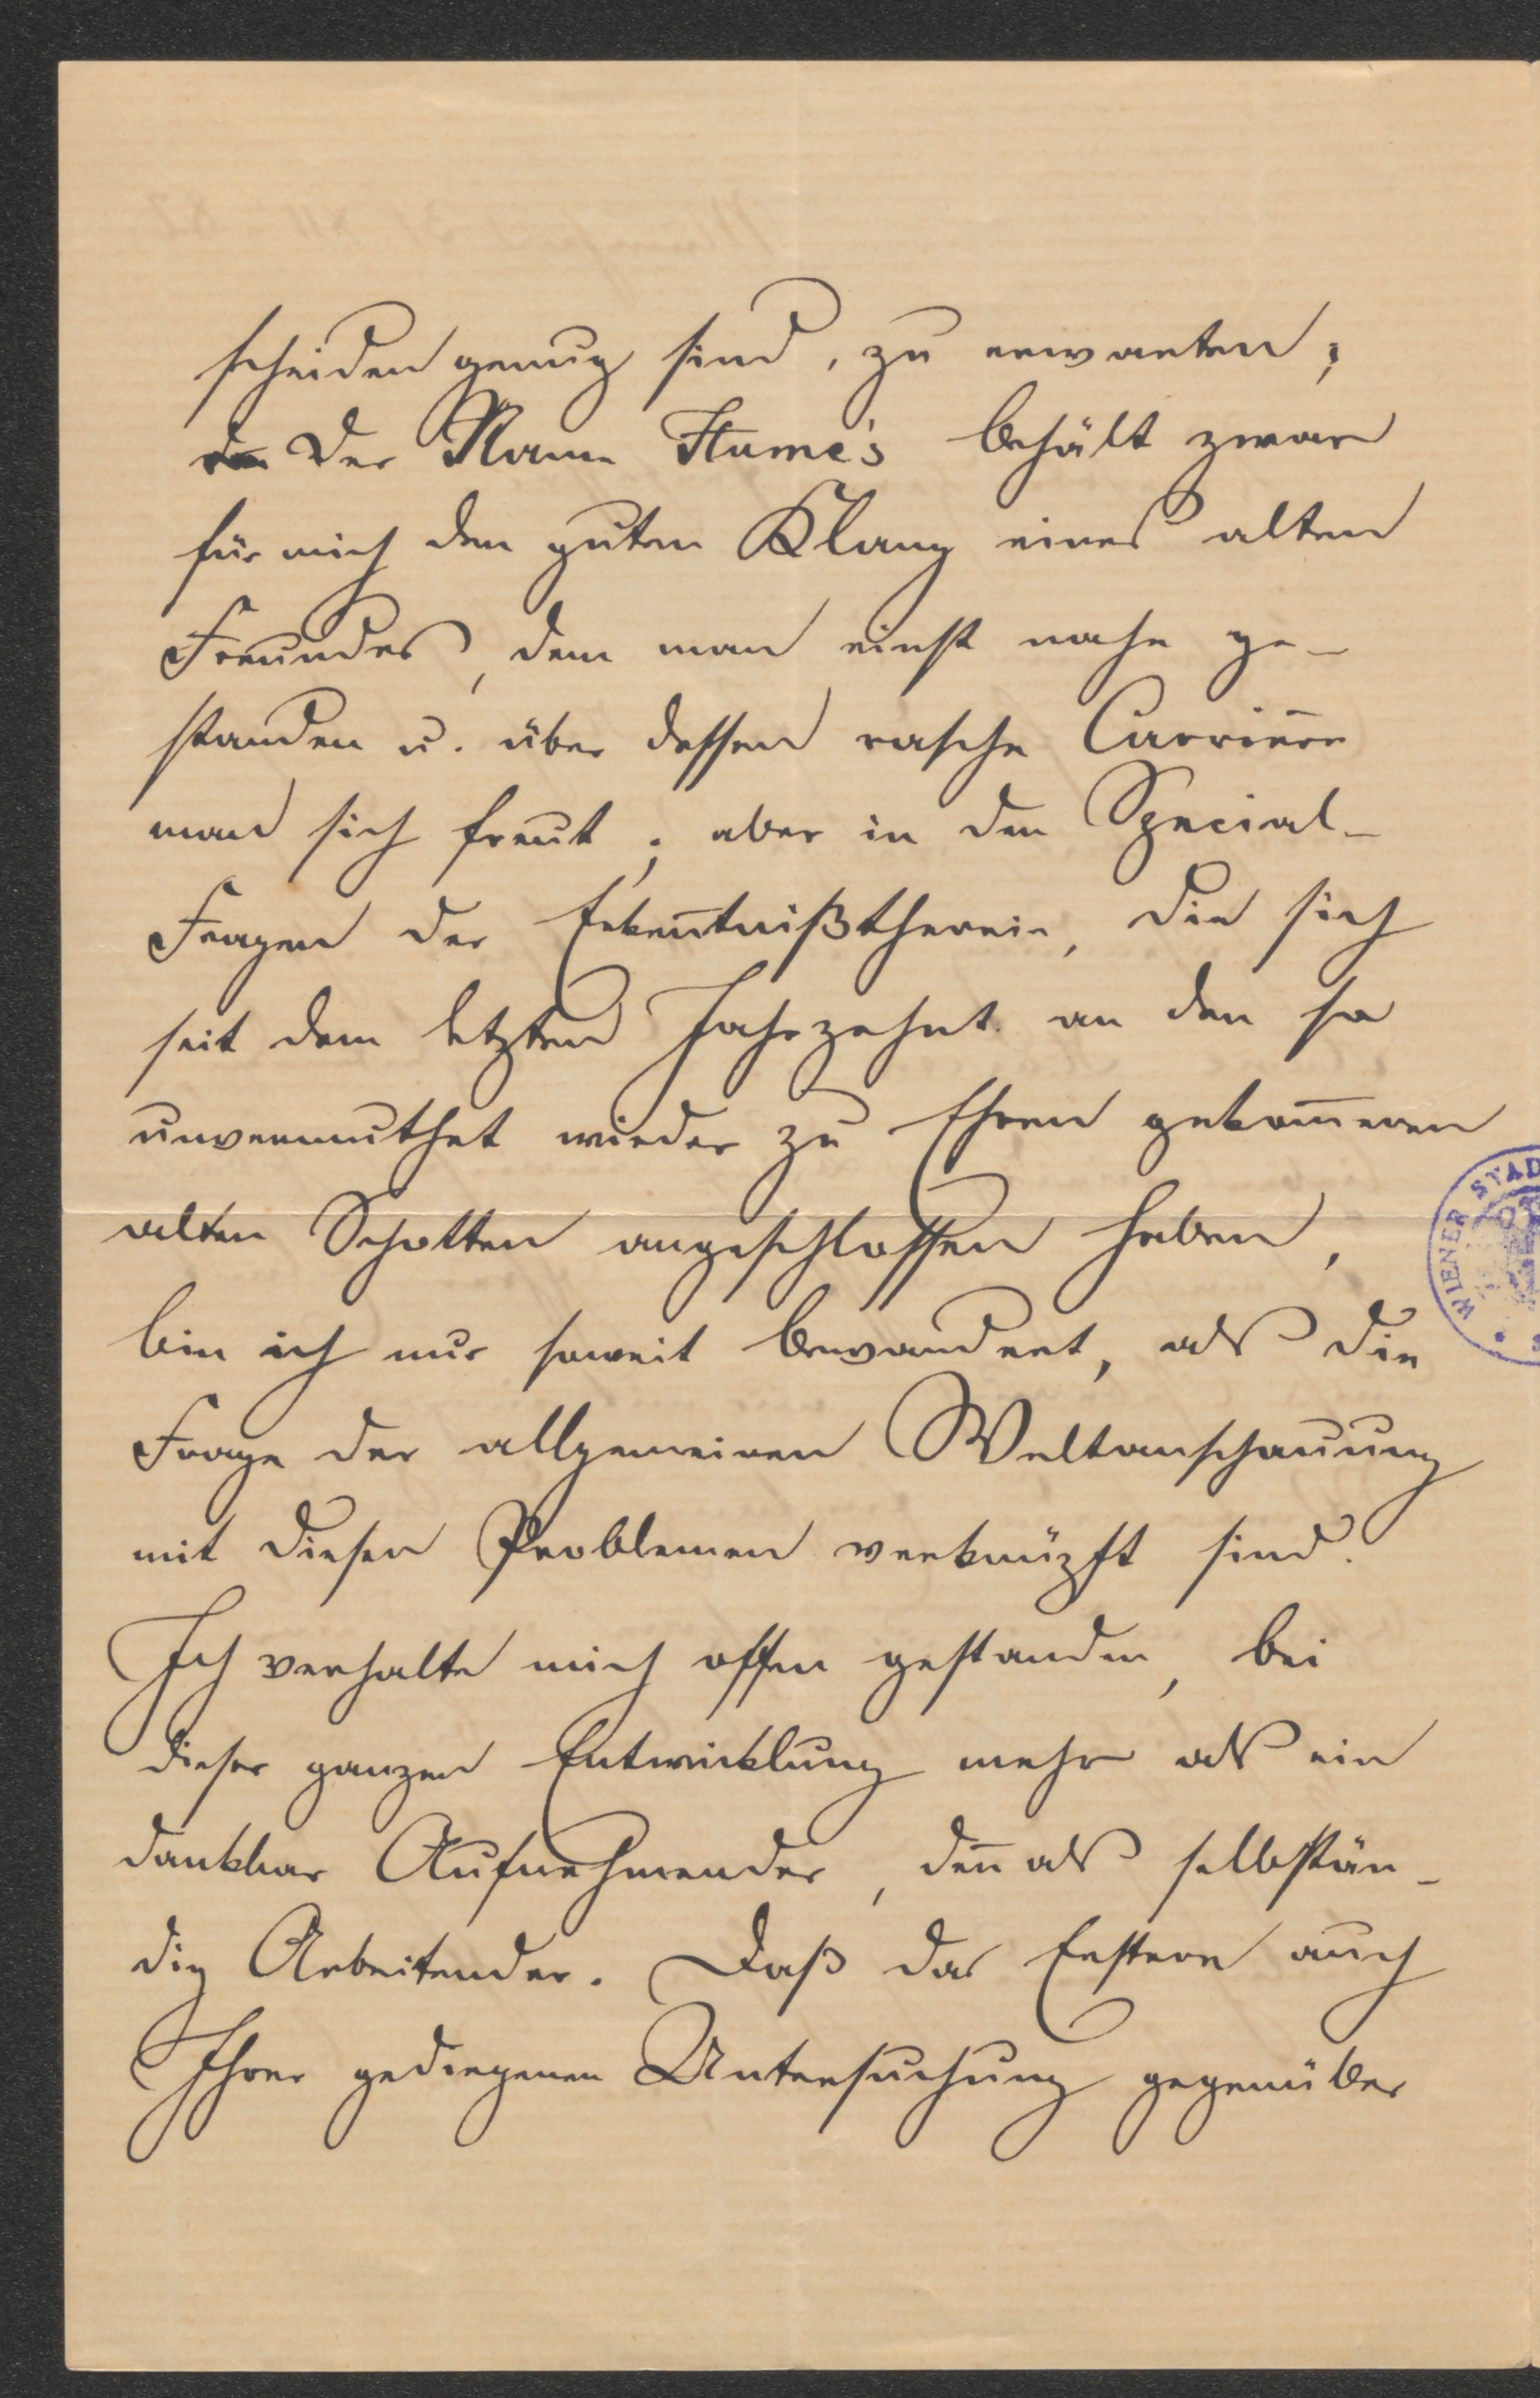 scheiden genug sind, zu erwarten;
der Name Hume's behält zwar
für mich den guten Klang eines alten
Freundes, dem man einst nahe ge-
standen u. über dessen rasche Carrière
man sich freut; aber in den Special-
Fragen der Erkenntnißtheorie, die sich
seit dem letzten Jahrzehnt an den so
unvermuthet wieder zu Ehren gekom̄enen
alten Schotten angeschlossen haben,
bin ich nur soweit bewandert, als die
Frage der allgemeinen Weltanschauung
mit diesen Problemen verknüpft sind.
Ich verhalte mich offen gestanden, bei
dieser ganzen Entwicklung mehr als ein
dankbar Aufnehmender, den̄ als selbstän-
dig Arbeitender. Daß das Erstere auch
Ihrer gediegenen Untersuchung gegenüber
WIENER STAD